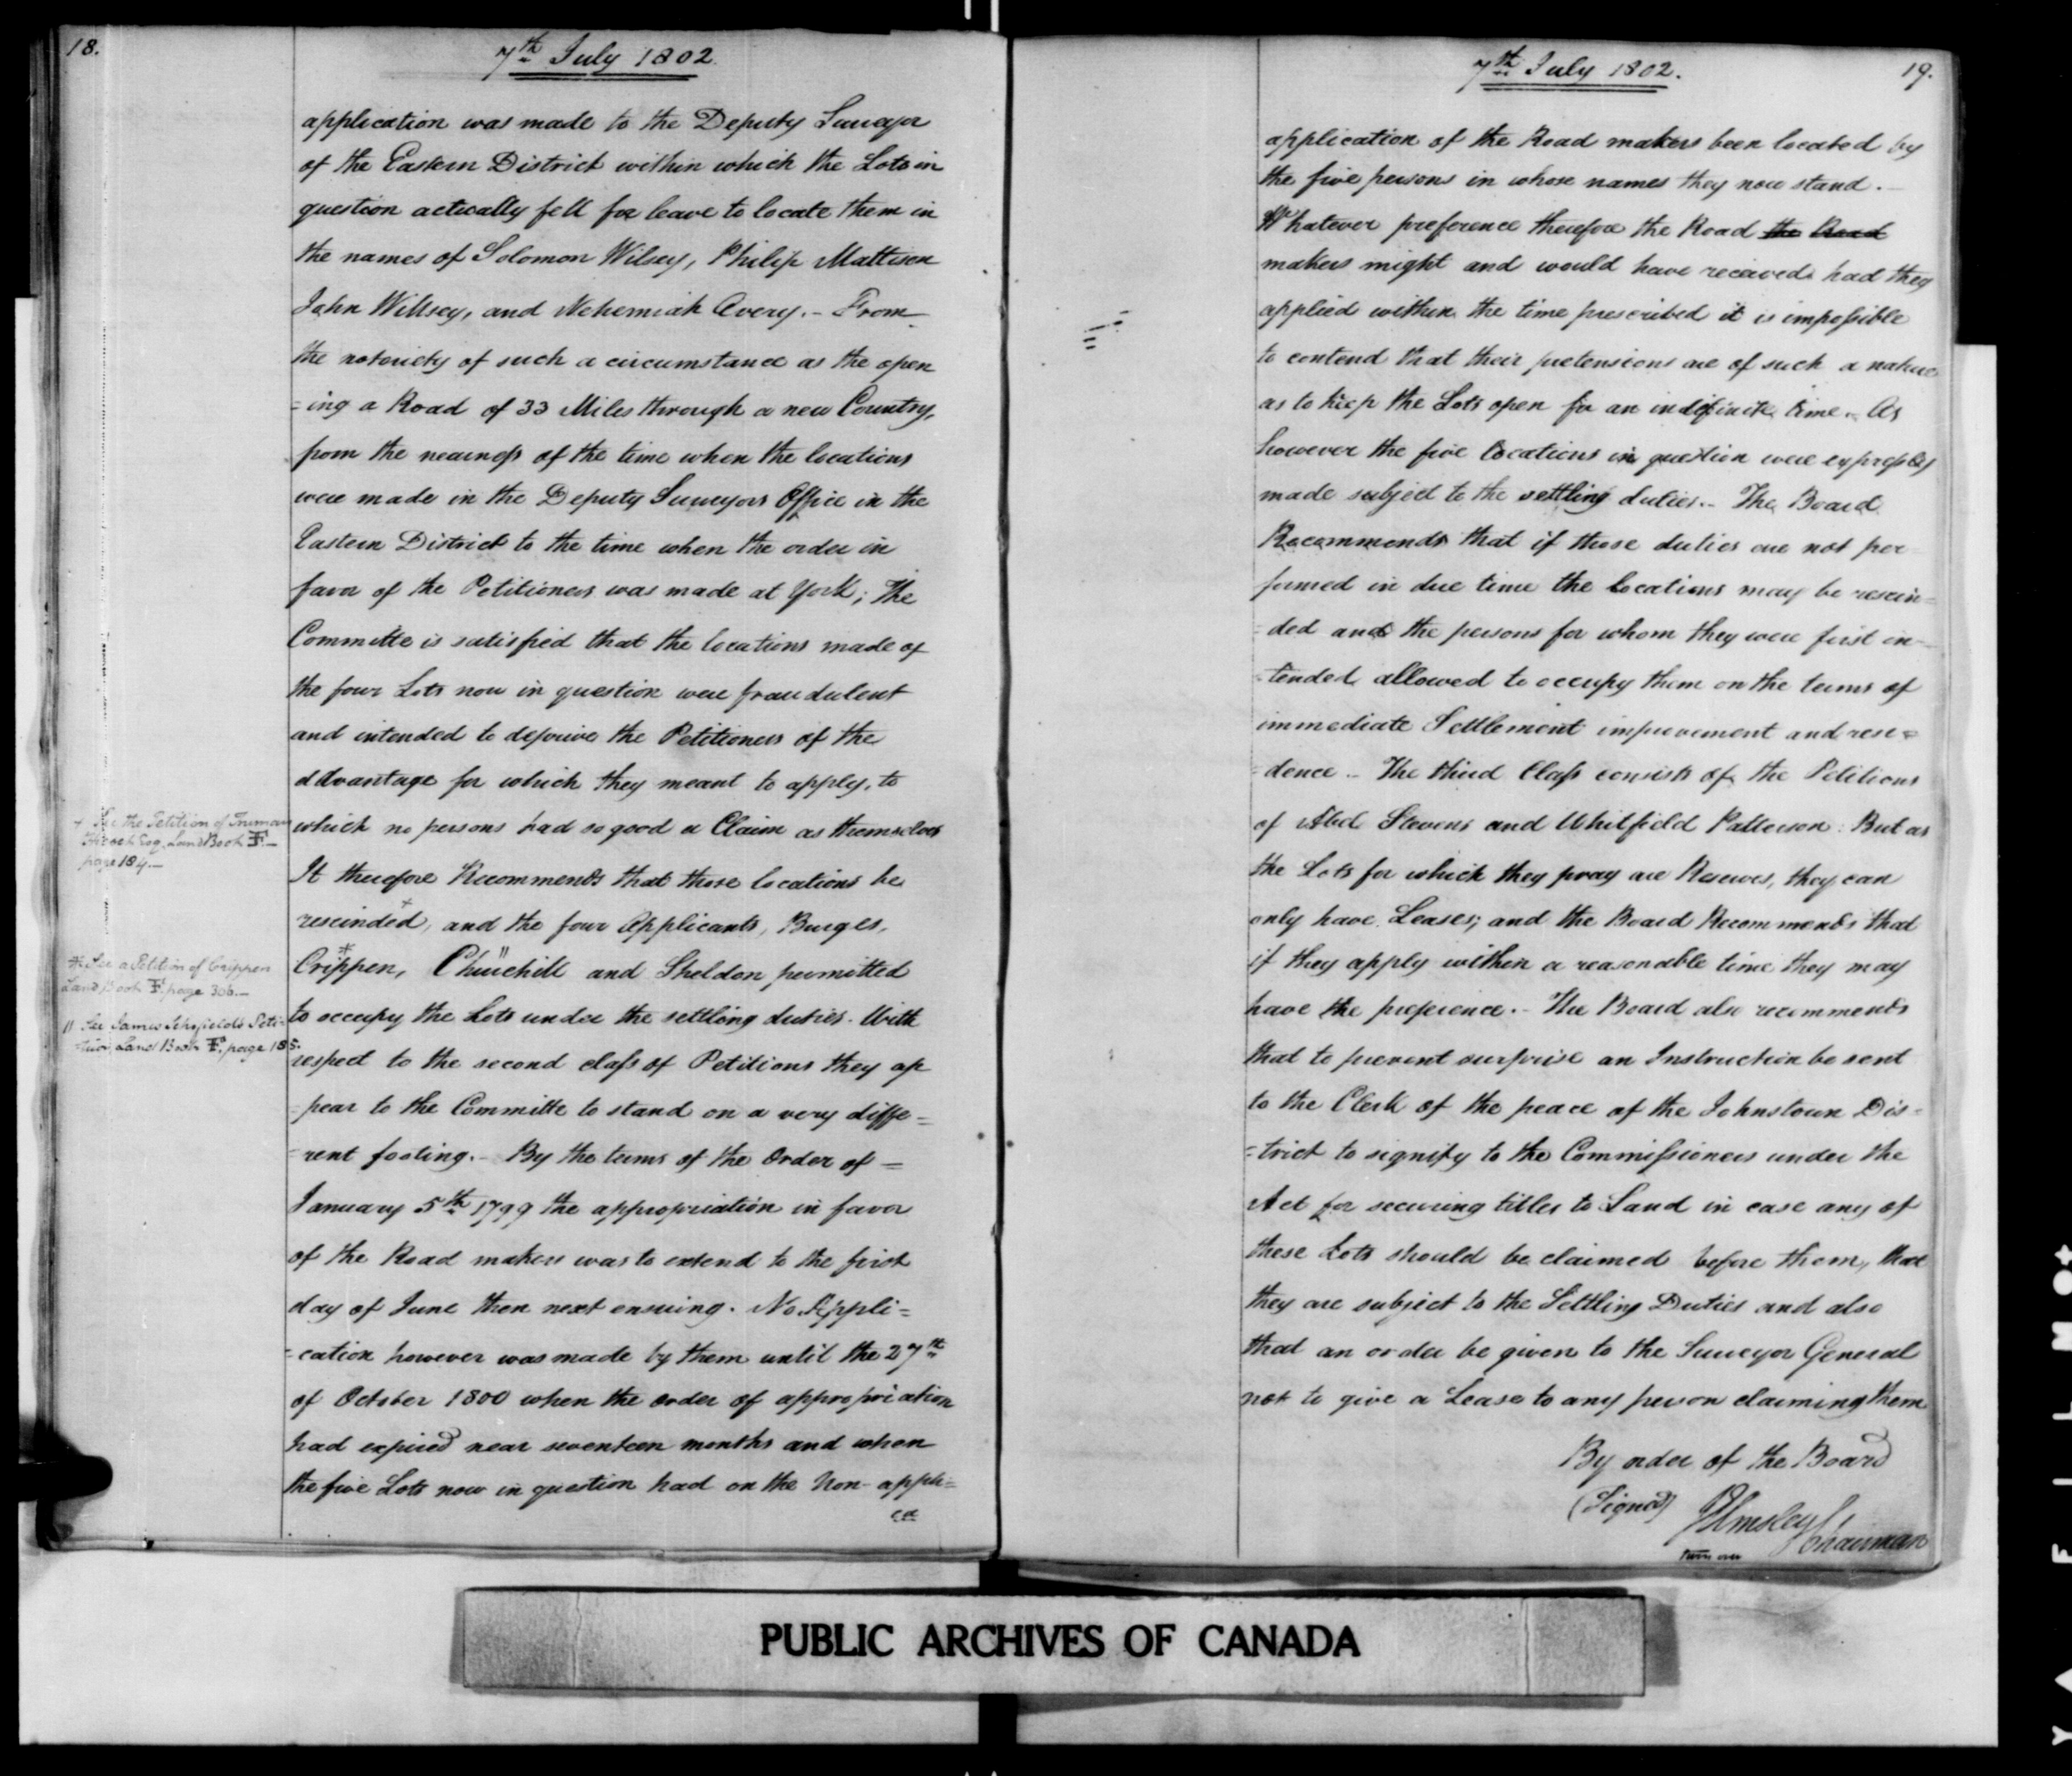 18.
7th July 1802.
application was made to the Deputy Surveyor
of the Eastern District within which the Lots in
question actually fell for leave to locate them in
the names of Solomon Wilsey, Philip Mattison
John Willsey, and Nehemiah Avery. - From
the notoriety of such a circumstance as the open
=ing a Road of 33 Miles through a new Country,
from the nearness of the time when the locations
were made in the Deputy Surveyors Office in the
Eastern District to the time when the order in
favor of the Petitioners was made at York; The
Committe is satisfied that the locations made of
the four Lots now in question were fraudulent
and intended to deprive the Petitioners of the
advantage for which they meant to apply, to
which no persons had so good a Claim as themselves
It therefore Recommends that those locations be
rescinded,+ and the four Applicants, Burges,
Crippen,* Churchill" and Sheldon permitted
to occupy the Lots under the settling duties. With
respect to the second class of Petitions they ap
=pear to the Committe to stand on a very diffe=
=rent footing. - By the terms of the Order of =
January 5th 1799 the appropriation in favor
of the Road makers was to extend to the first
day of June then next ensuing. No Appli=
=cation however was made by them until the 27th
of October 1800 when the order of appropriation
had expired near seventeen months and when
the five Lots now in question had on the Non-appli=
ca
+ See the Petition of Truman
Hicock Esq. Land Book F.-
page 184.-
* See a Petition of Crippen
Land Book F. page 306.-
" See James Schofield's Peti-
tion Land Book F. page 185.
7th July 1802.
19.
application of the Road makers been located by
the five persons in whose names they now stand. -
Whatever preference therefore the Road the Road
makers might and would have received had they
applied within the time prescribed it is impossible
to contend that their pretensions are of such a nature
as to keep the Lots open for an indefinite time. As
however the five locations in question were expressly
made subject to the settling duties. - The Board
Recommends that if those duties are not per
formed in due time the locations may be rescin=
=ded and the persons for whom they were first in-
=tended allowed to occupy them on the terms of
immediate Settlement improvement and resi=
=dence - The third Class consists of the Petitions
of Abel Stevens and Whitfield Patterson: But as
the Lots for which they pray are Reserves, they can
only have Leases; and the Board Recommends that
if they apply within a reasonable time they may
have the preference. - The Board also recommends
that to prevent surprise an Instruction be sent
to the Clerk of the peace of the Johnstown Dis=
=trict to signify to the Commissioners under the
Act for securing titles to Land in case any of
these Lots should be claimed before them, that
they are subject to the Settling Duties and also
that an order be given to the Surveyor General
not to give a Lease to any person claiming them
By order of the Board
(Signed) J Elmsley Chairman
turn over
PUBLIC ARCHIVES OF CANADA